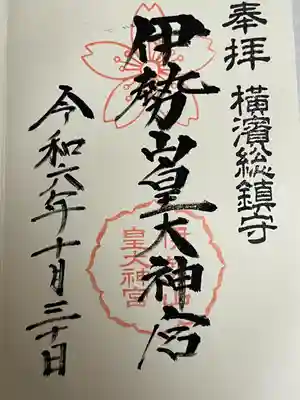 奉拝 横濱総鎮守
伊勢山皇大神宮
令和六年十月三十日
皇大神宮